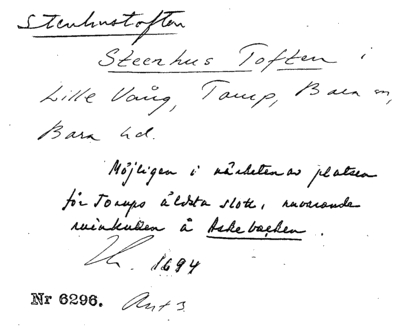 Stenhustoften
Steenhus Toften i
Lille Vång, Torup, Bara sn,
Bara hd.
Möjligen i närheten av platsen
för Torups äldsta slott, nuvarande
ruinkullen å Askebacken.
1694
Nr 6296.